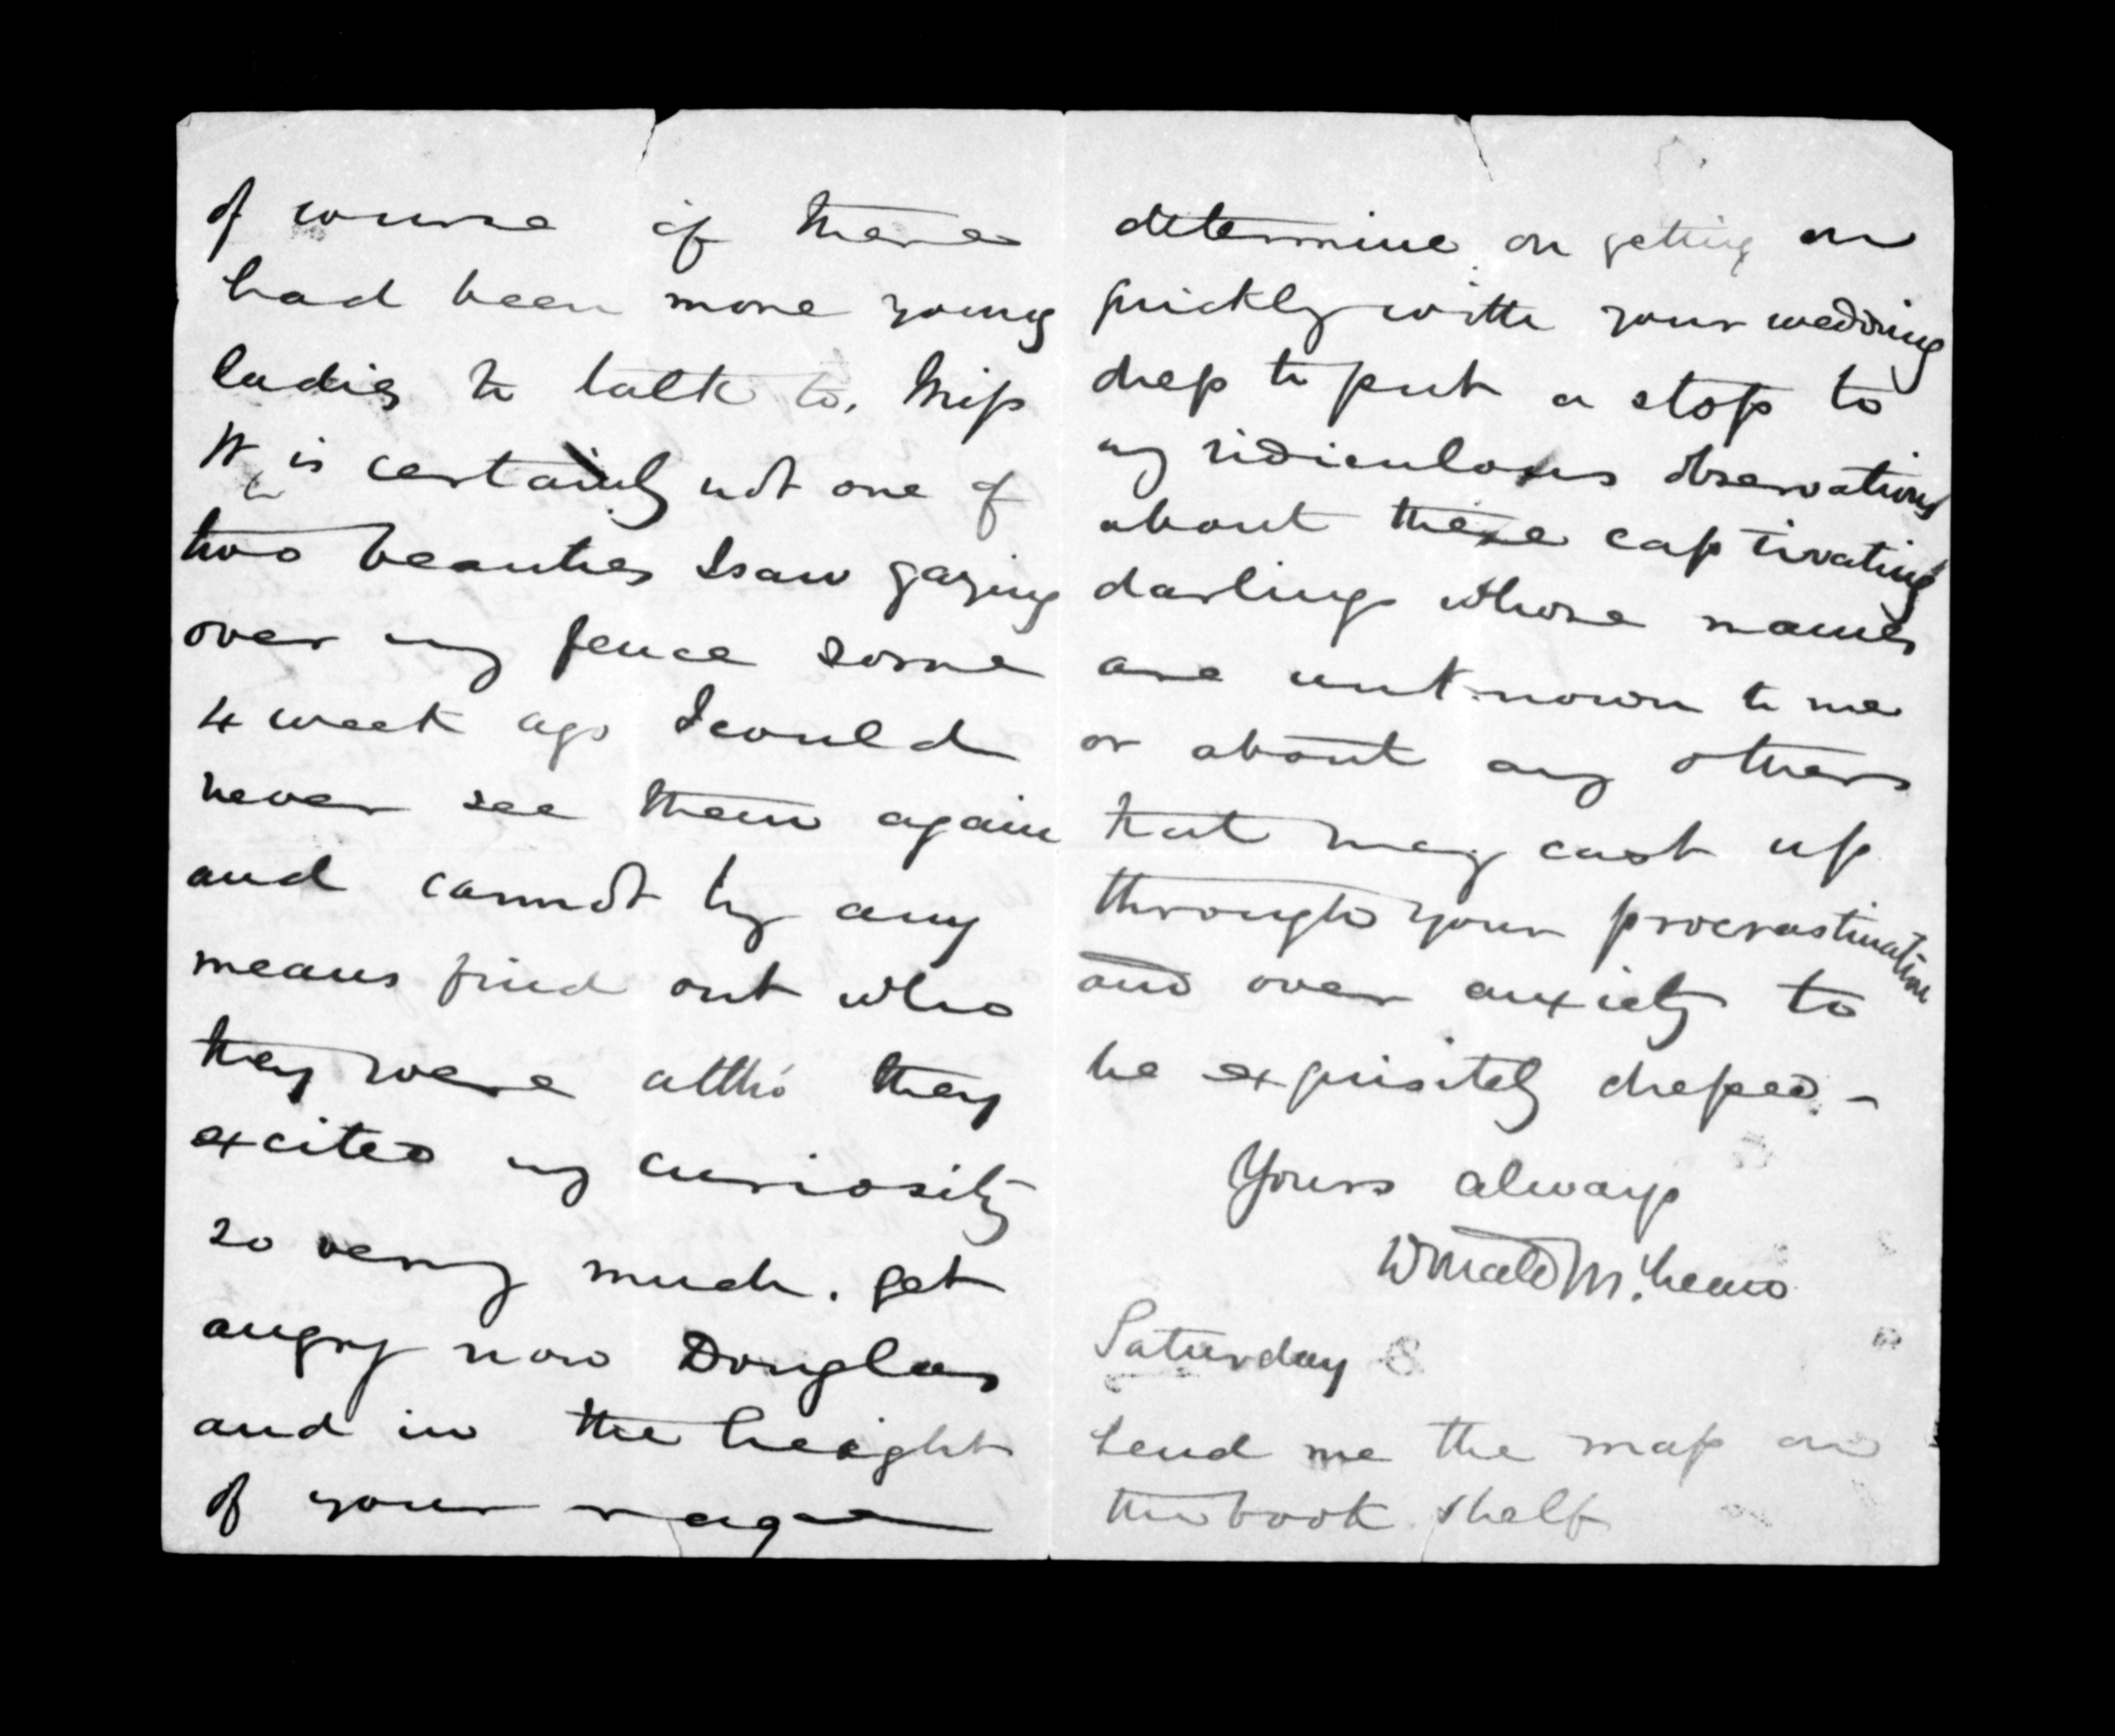 of course if there
had been more young
ladies to talk to. Miss
W is certainly not one of
two beauties I saw gazing
over my fence some
4 week ago I could
never see them again
and cannot by any
means find out who
they were altho' they
excited my curiosity
so very much. get
angry now Douglas
and in the height
of your rage
determine on getting on
quickly with your wedding
dress to put a stop to
my ridiculous observations
about these captivating
darlings whose names
are unknown to me
or about any others
that may cast up
through your procrastination
and over anxiety to
be exquisitely dressed -
Yours always
Donald McLean
Saturday 8
Send me the map on
the book shelf